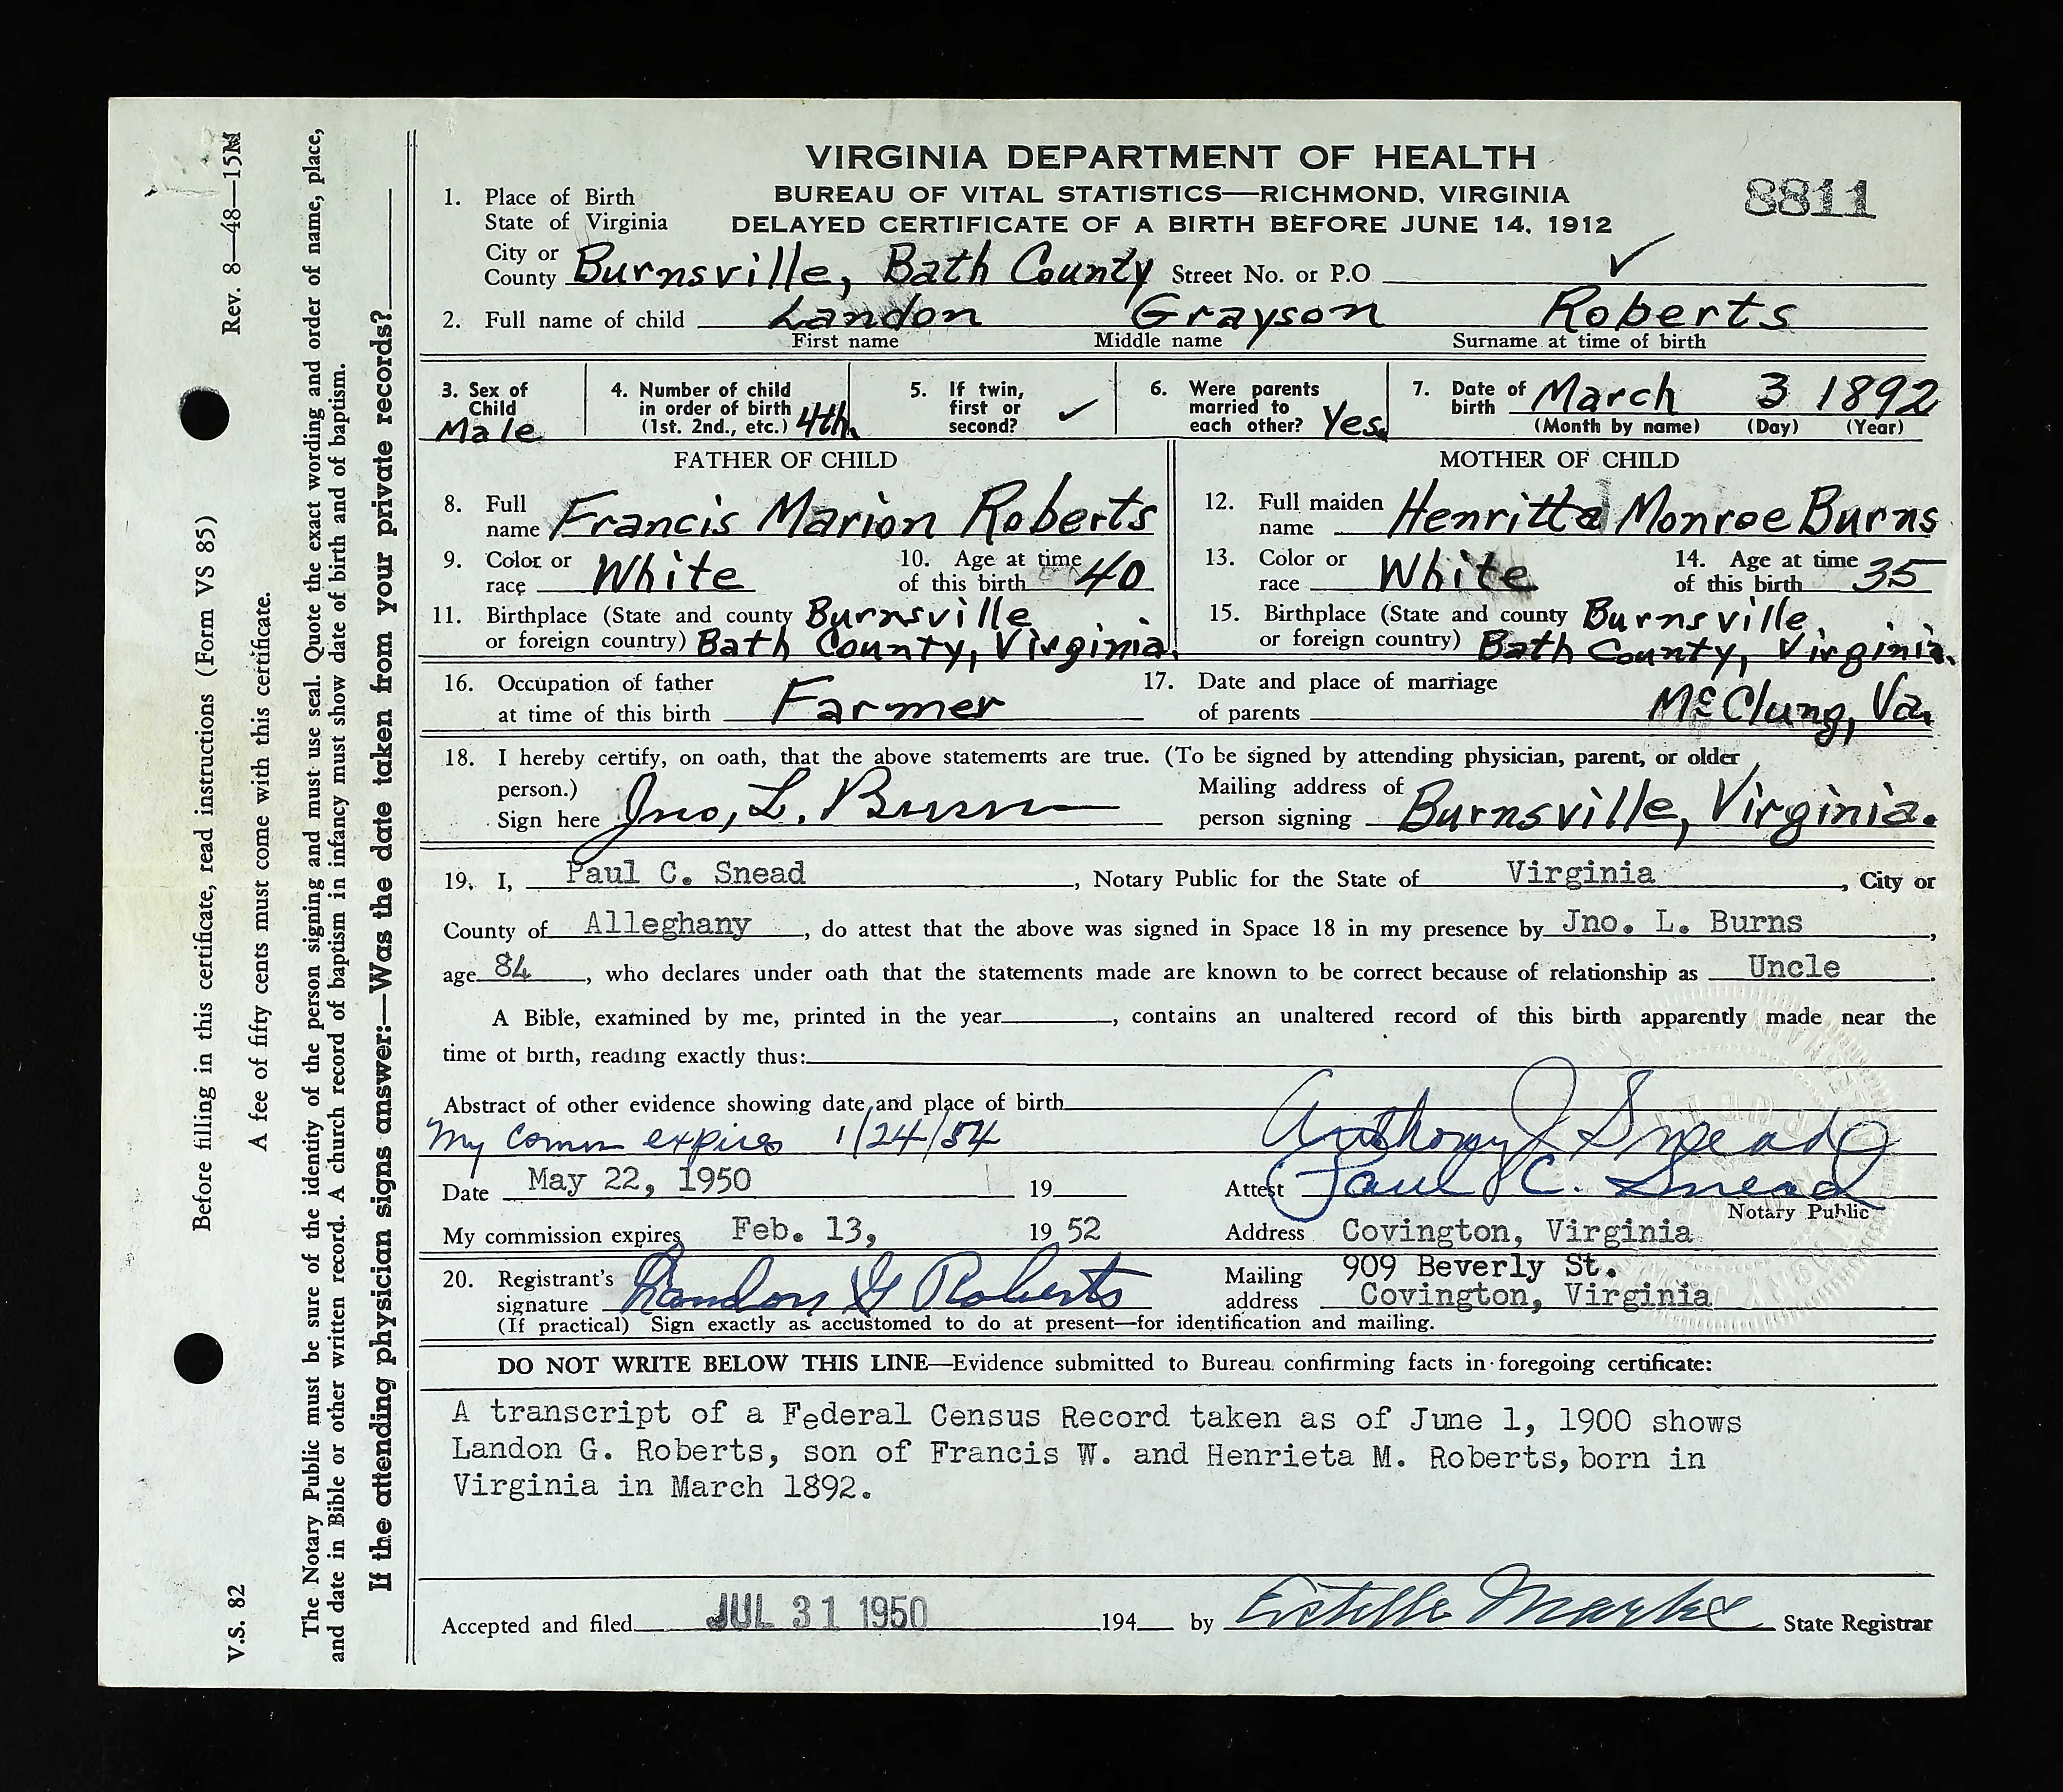 VIRGINIA DEPARTMENT OF HEALTH
BUREAU OF VITAL STATISTICS—RICHMOND, VIRGINIA
DELAYED CERTIFICATE OF A BIRTH BEFORE JUNE 14, 1912
8811
1. Place of Birth
State of Virginia
City or County Burnsville, Bath County Street No. or P.O. ✓
2. Full name of child Landon Grayson Roberts
First name Middle name Surname at time of birth
3. Sex of Child Male
4. Number of child in order of birth (1st. 2nd., etc.) 4th.
5. If twin, first or second? ✓
6. Were parents married to each other? Yes.
7. Date of birth March 3 1892
(Month by name) (Day) (Year)
FATHER OF CHILD
8. Full name Francis Marion Roberts
9. Color or race White
10. Age at time of this birth 40
11. Birthplace (State and county Burnsville
or foreign country) Bath County, Virginia.
MOTHER OF CHILD
12. Full maiden name Henritta Monroe Burns
13. Color or race White
14. Age at time of this birth 35
15. Birthplace (State and county Burnsville
or foreign country) Bath County, Virginia.
16. Occupation of father at time of this birth Farmer
17. Date and place of marriage of parents McClung, Va.
18. I hereby certify, on oath, that the above statements are true. (To be signed by attending physician, parent, or older
person.)
Sign here Jno, L. Burns
Mailing address of person signing Burnsville, Virginia.
19. I, Paul C. Snead, Notary Public for the State of Virginia, City or
County of Alleghany, do attest that the above was signed in Space 18 in my presence by Jno. L. Burns,
age 84, who declares under oath that the statements made are known to be correct because of relationship as Uncle.
A Bible, examined by me, printed in the year, contains an unaltered record of this birth apparently made near the
time of birth, reading exactly thus:
Abstract of other evidence showing date and place of birth
My comm expires 1/24/54 Anthony J Snead
Date May 22, 1950 19 Attest Paul C. Snead
Notary Public
My commission expires Feb. 13, 1952 Address Covington, Virginia
20. Registrant's signature Landon G Roberts
Mailing address 909 Beverly St.
Covington, Virginia
(If practical) Sign exactly as accustomed to do at present—for identification and mailing.
DO NOT WRITE BELOW THIS LINE—Evidence submitted to Bureau confirming facts in foregoing certificate:
A transcript of a Federal Census Record taken as of June 1, 1900 shows
Landon G. Roberts, son of Francis W. and Henrieta M. Roberts, born in
Virginia in March 1892.
Accepted and filed JUL 31 1950 194 by Estelle Marks State Registrar
Rev. 8—48—15M
Before filling in this certificate, read instructions (Form VS 85)
A fee of fifty cents must come with this certificate.
V.S. 82
The Notary Public must be sure of the identity of the person signing and must use seal. Quote the exact wording and order of name, place,
and date in Bible or other written record. A church record of baptism in infancy must show date of birth and of baptism.
If the attending physician signs answer:—Was the date taken from your private records?